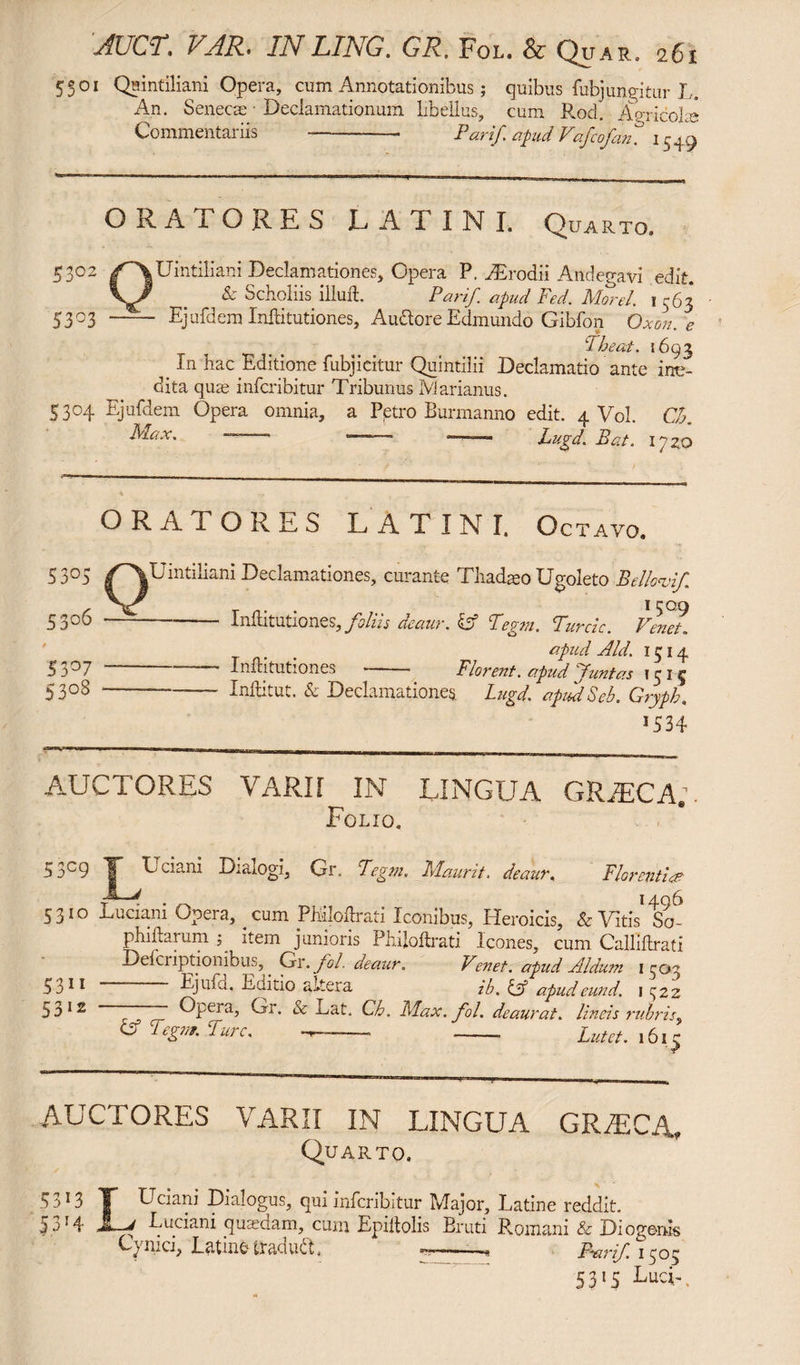 AUCT. VAR. IN LING. GR. FOL. & QUAR. 261
5501 Quintiliani Opera, cum Annotationibus; quibus ſubjungitur L.
An. Senecæ Declamationum Libellus, cum Rod. Agricolæ
Commentariis ——— Pariſ. apud Vaſcoſan. 1549
ORATORES LATINI. QUARTO.
5302 QUintiliani Declamationes, Opera P. Ærodii Andegavi edit.
& Scholiis illuſt. Pariſ. apud Fed. Morel. 1563
5303 —— Ejuſdem Inſtitutiones, Auctore Edmundo Gibſon Oxon. e
Theat. 1693
In hac Editione ſubjicitur Quintilii Declamatio ante ine-
dita quæ inſcribitur Tribunus Marianus.
5304 Ejuſdem Opera omnia, a Petro Burmanno edit. 4 Vol. Ch.
Max. —— —— —— Lugd. Bat. 1720
ORATORES LATINI. OCTAVO.
5305 QUintiliani Declamationes, curante Thadæo Ugoleto Belloviſ.
1509
5306 ——— Inſtitutiones, foliis deaur. & Tegm. Turcic. Venet.
apud Ald. 1514
5307 ——— Inſtitutiones —— Florent. apud Juntas 1515
5308 ——— Inſtitut. & Declamationes Lugd. apud Seb. Gryph.
1534
AUCTORES VARII IN LINGUA GRÆCA.
FOLIO.
5309 LUciani Dialogi, Gr. Tegm. Maurit. deaur. Florentiæ
1496
5310 Luciani Opera, cum Philoſtrati Iconibus, Heroicis, & Vitis So-
phiſtarum; item junioris Philoſtrati Icones, cum Calliſtrati
Deſcriptionibus, Gr. fol. deaur. Venet. apud Aldum 1503
5311 ——— Ejuſd. Editio altera ib. & apud eund. 1522
5312 ——— Opera, Gr. & Lat. Ch. Max. fol. deaurat. lineis rubris,
& Tegm. Turc. —— —— Lutet. 1615
AUCTORES VARII IN LINGUA GRÆCA,
QUARTO.
5313 LUciani Dialogus, qui inſcribitur Major, Latine reddit.
5314 Luciani quædam, cum Epiſtolis Bruti Romani & Diogenis
Cynici, Latine traduct. ——— Pariſ. 1505
5315 Luci-